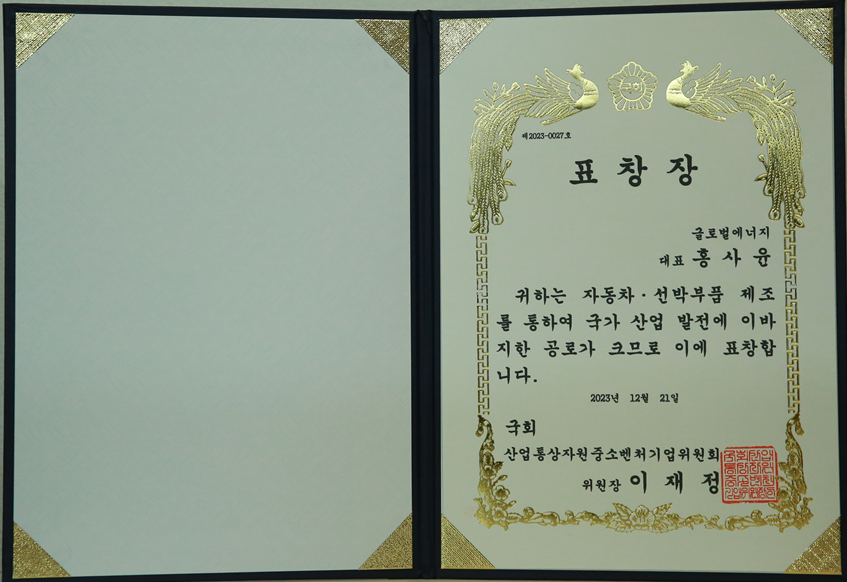 국회
제2023-0027호
표창장
글로벌에너지
대표 홍사윤
귀하는 자동차·선박부품 제조
를 통하여 국가 산업 발전에 이바
지한 공로가 크므로 이에 표창합
니다.
2023년 12월 21일
국회
산업통상자원중소벤처기업위원회
위원장 이재정